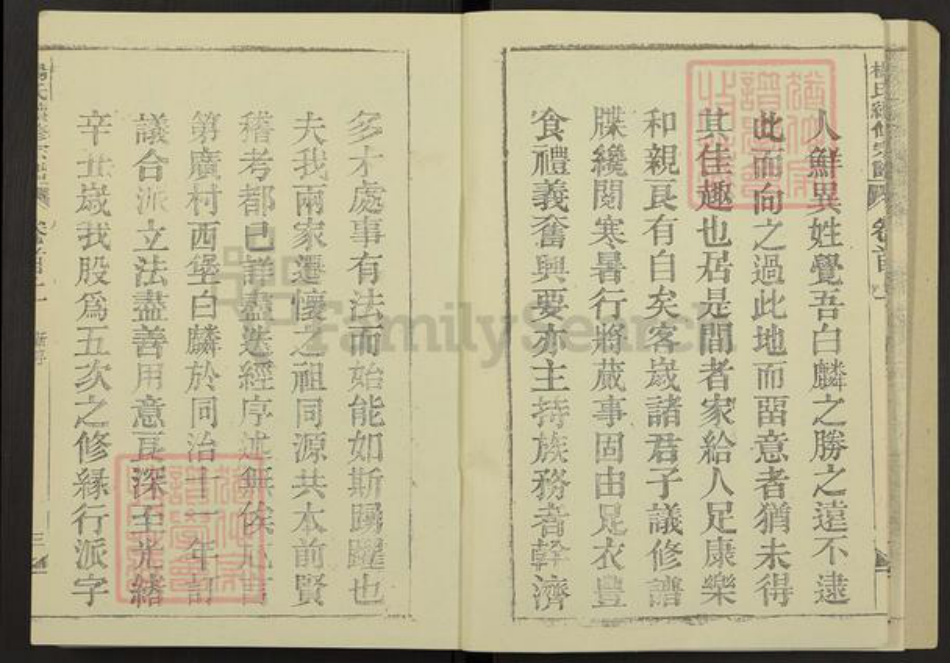 人鮮異姓覺吾白麟之勝之遠不逮
此而向之過此地而畱意者猶未得
其佳趣也居是間者家給人足康樂
和親良有白矣客歲諸君子議修譜
牒纔閱寒暑行將蕆事固由足衣豐
食禮義奮興要亦主持族務者幹濟
多才處事有法而始能如斯踴躍也
夫我兩家遷懷之祖同源共本前賢
稽考都已詳盡迭經序述無俟
第廣村西堡白麟於同治十一年訂
議合派立法盡善用意良深至光緒
辛丑歲我股爲五次之修緣行派字
楊氏續修宗譜 卷首
卷首 三
FamilySearch